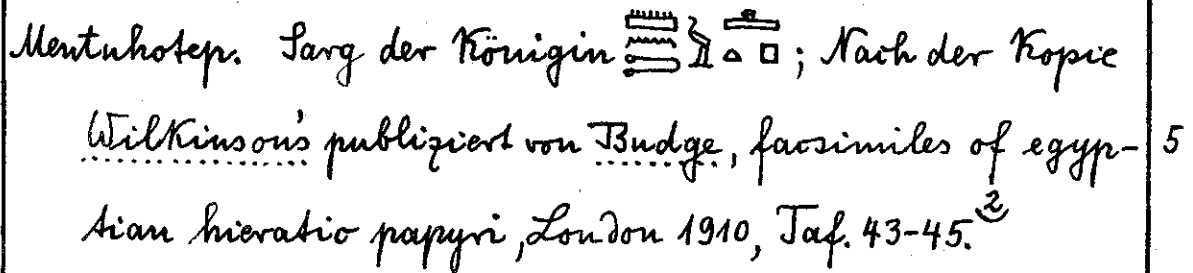 Mentuhotep. Sarg der Königin 𓏠𓈖𓍿𓅱𓊵𓏏𓊪; Nach der Kopie
Wilkinson's publiziert von Budge, facsimiles of egyp- 5
tian hieratic papyri, London 1910, Taf. 43-45. 2